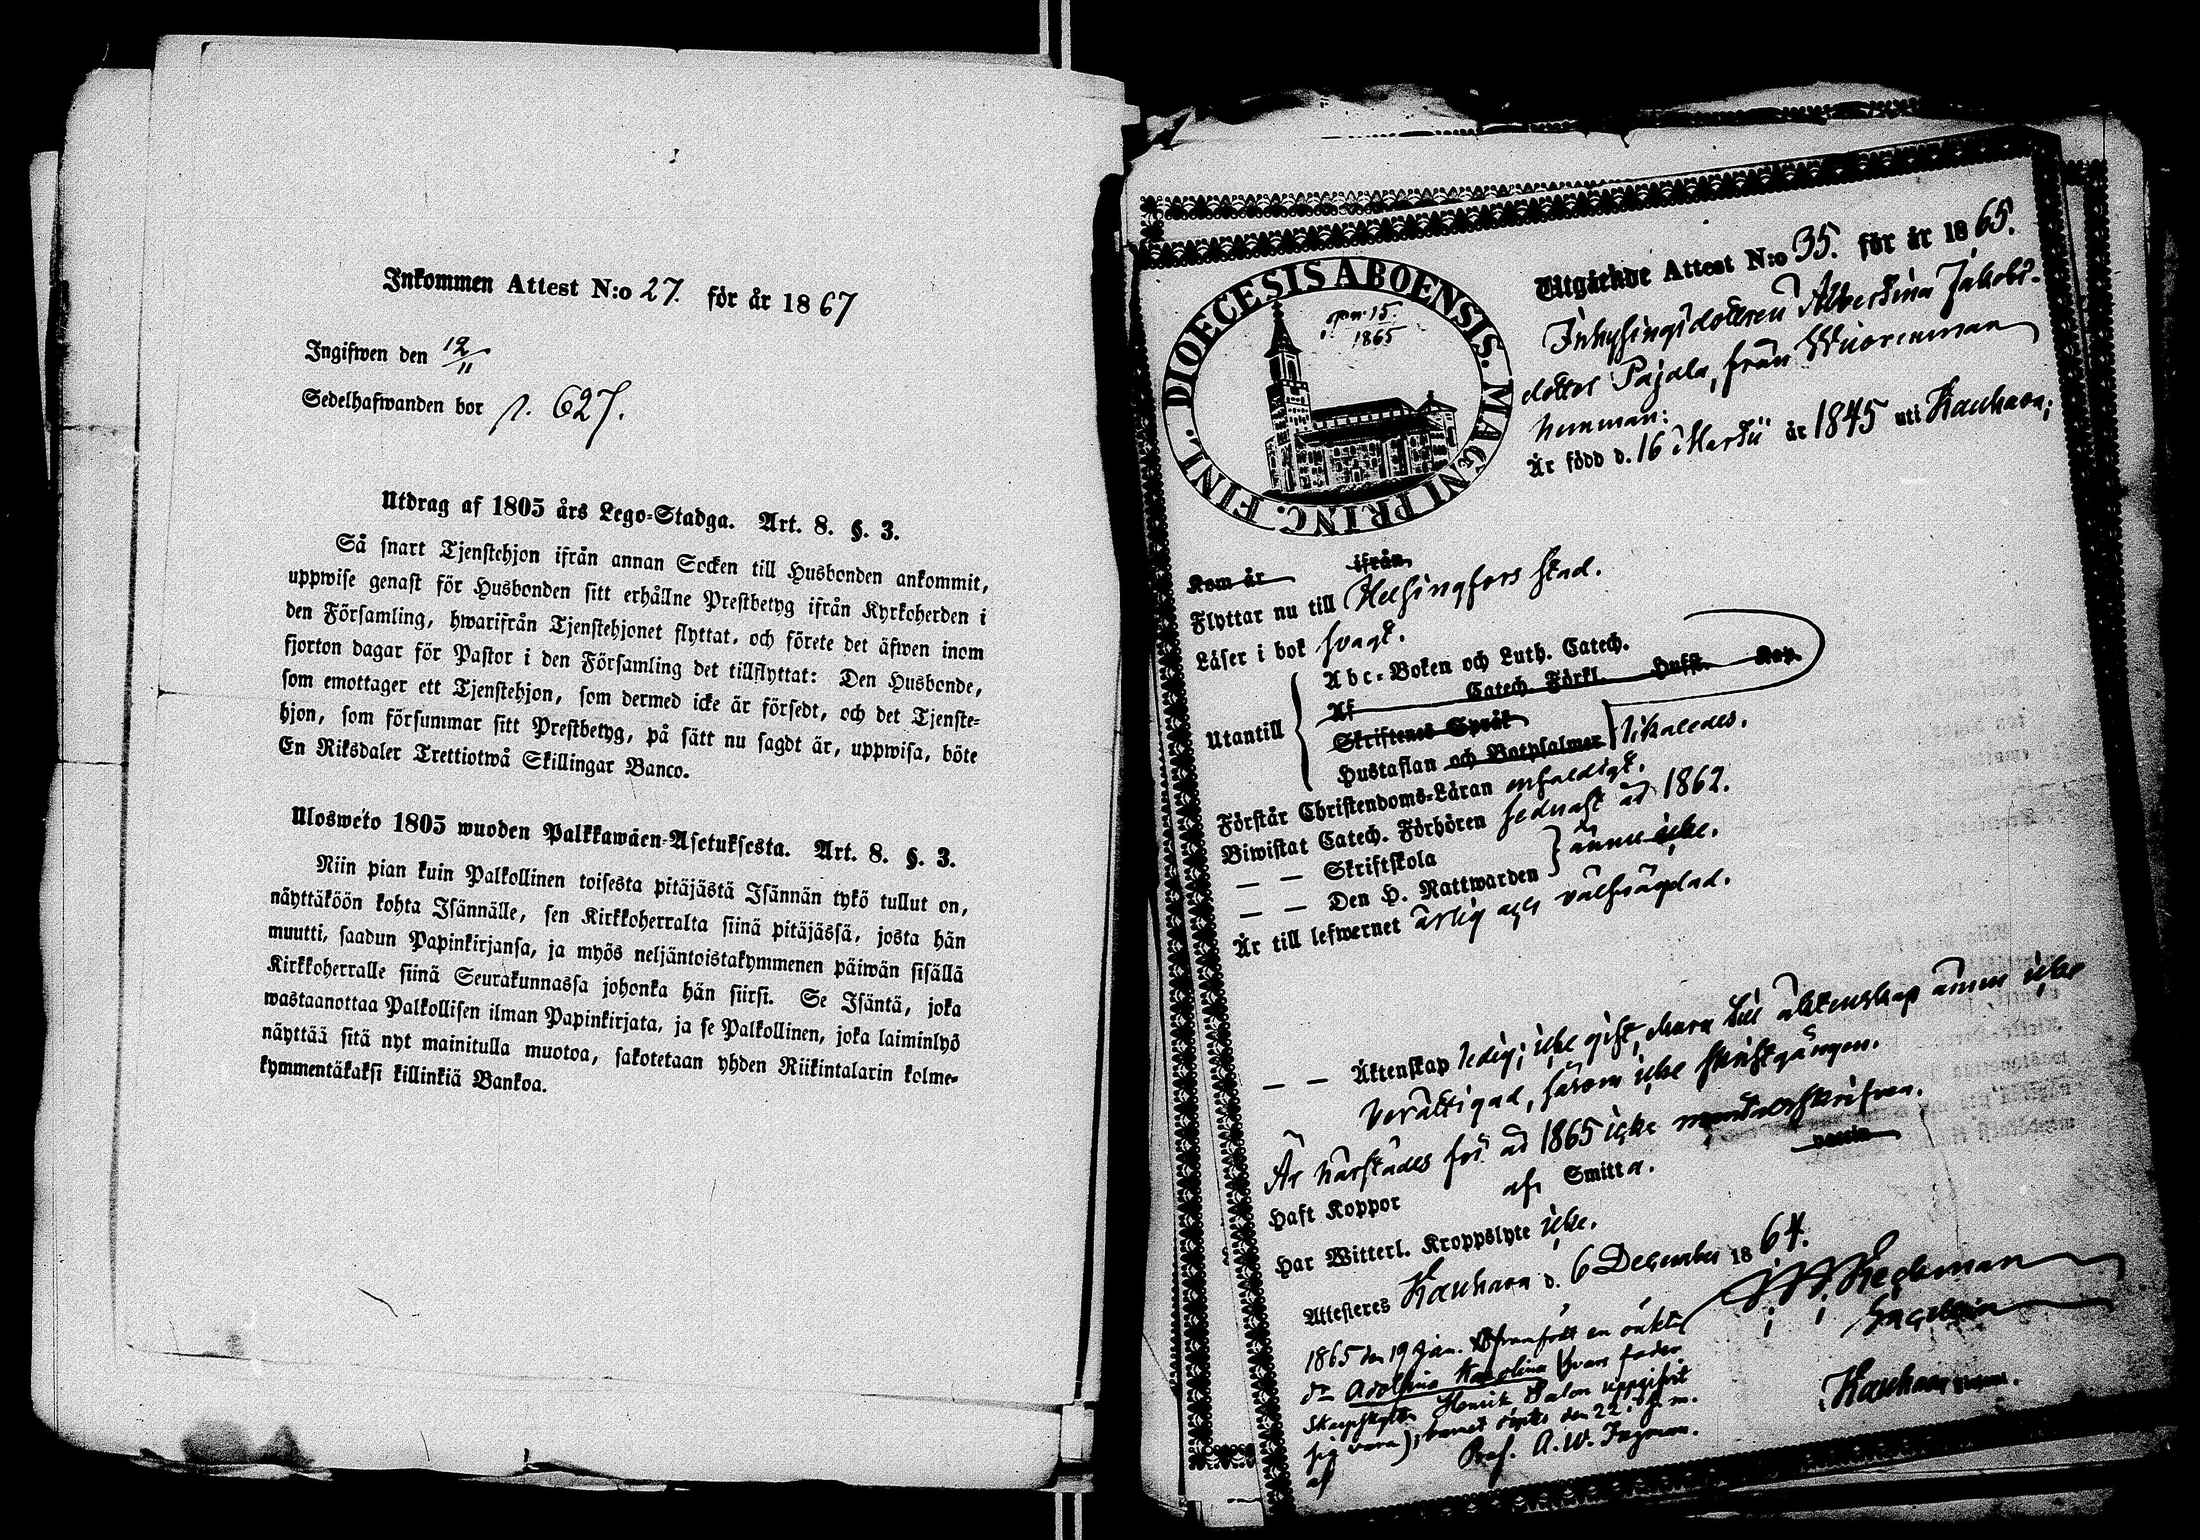 Inkommen Attest N:o 27. för år 1867
Ingifwen den 12/11
Sedelhafwanden bor p. 627.
Utdrag af 1805 års Lego-Stadga. Art. 8. §. 3.
Så snart Tjenstehjon ifrån annan Socken till Husbonden ankommit,
uppwise genast för Husbonden sitt erhållne Prestbetyg ifrån Kyrkoherden i
den Församling, hwarifrån Tjenstehjonet flyttat, och förete det äfwen inom
fjorton dagar för Pastor i den Församling det tillflyttat: Den Husbonde,
som emottager ett Tjenstehjon, som dermed icke är försedt, och det Tjenste-
hjon, som försummar sitt Prestbetyg, på sätt nu sagdt är, uppwisa, böte
En Riksdaler Trettiotwå Skillingar Banco.
Uloswéto 1805 wuoden Palkkawäen-Asetuksesta. Art. 8. §. 3.
Niin pian kuin Palkollinen toisesta pitäjästä Isännän tykö tullut on,
näyttäköön kohta Isännälle, sen Kirkkoherralta siinä pitäjässä, josta hän
muutti, saadun Papinkirjansa, ja myös neljäntoistakymmenen päiwän sisällä
Kirkkoherralle siinä Seurakunnassa johonka hän siirsi. Se Isäntä, joka
wastaanottaa Palkollisen ilman Papinkirjata, ja se Palkollinen, joka laiminlyö
näyttää sitä nyt mainitulla muotoa, sakotetaan yhden Riikintalarin kolme-
kymmentäkaksi killinkiä Bankoa.
DIOECESIS ABOENSIS. MAGNI PRINC. FINL.
15
1865
Utgående Attest N:o 35. för år 1865.
Inhysingsdottren Albertina Jakobs-
dotter Pajala, från Wuorenmaa
hemman:
Är född d. 16 Martii år 1845 uti Kauhava;
Kom år ifrån
Flyttar nu till Helsingfors stad.
Läser i bok svagt.
Utantill
Abc-Boken och Luth. Catech.
Af Catech. Förkl. Hufst. Kap.
Skriftenes Språk
Hustaflan och Botpsalmer likaledes.
Förstår Christendoms-Läran enfaldigt.
Biwistat Catech. Förhören sednast år 1862.
— — Skriftskola
— — Den H. Nattwarden ännu icke.
Är till lefwernet ärlig och välfrägdad.
— — Äktenskap ledig; icke gift, ännu icke
berättigad, såsom icke skriftgången.
Är härstädes för år 1865 icke mantalsskrifven.
Haft Koppor af Smitta.
Har Witterl. Kroppslyte icke.
Attesteres Kauhava d. 6 December 1864.
1865 den 19 Jan. framfödt en oäkta
dr Adolfina Karolina (hvars fader
Skarpskytten Henrik Salon uppgifvit
sig vara); barnet döptes den 22 i s. m.
af Prof. A. W. Ingman.
Kauhava